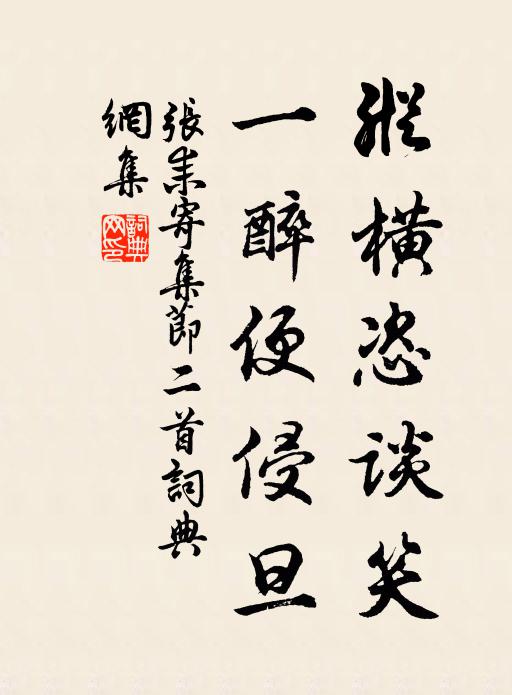 縱橫恣談笑
一醉便侵旦
張耒寄集節二首詞典
網集
詞典網印